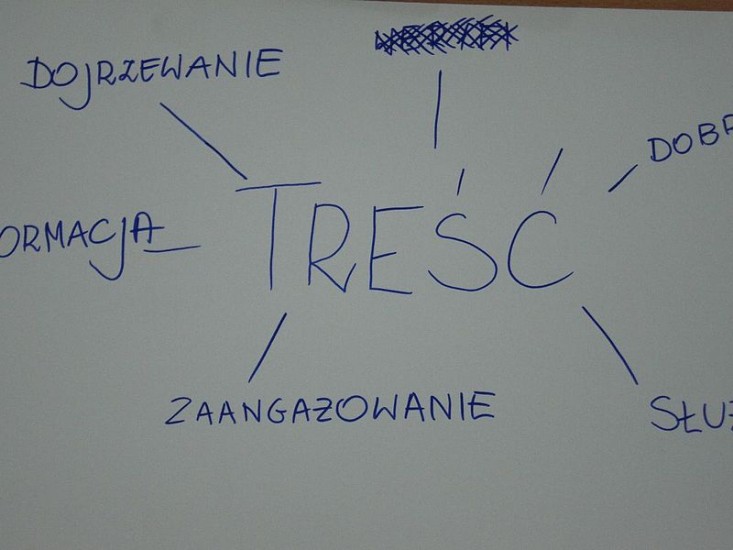 DOJRZEWANIE
DOB
ORMACJA
TREŚĆ
ZAANGAZOWANIE
SŁU